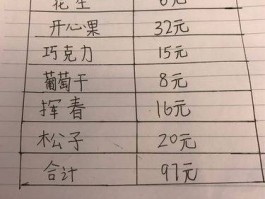 花生 6元
开心果 32元
巧克力 15元
葡萄干 8元
挥春 16元
松子 20元
合计 97元